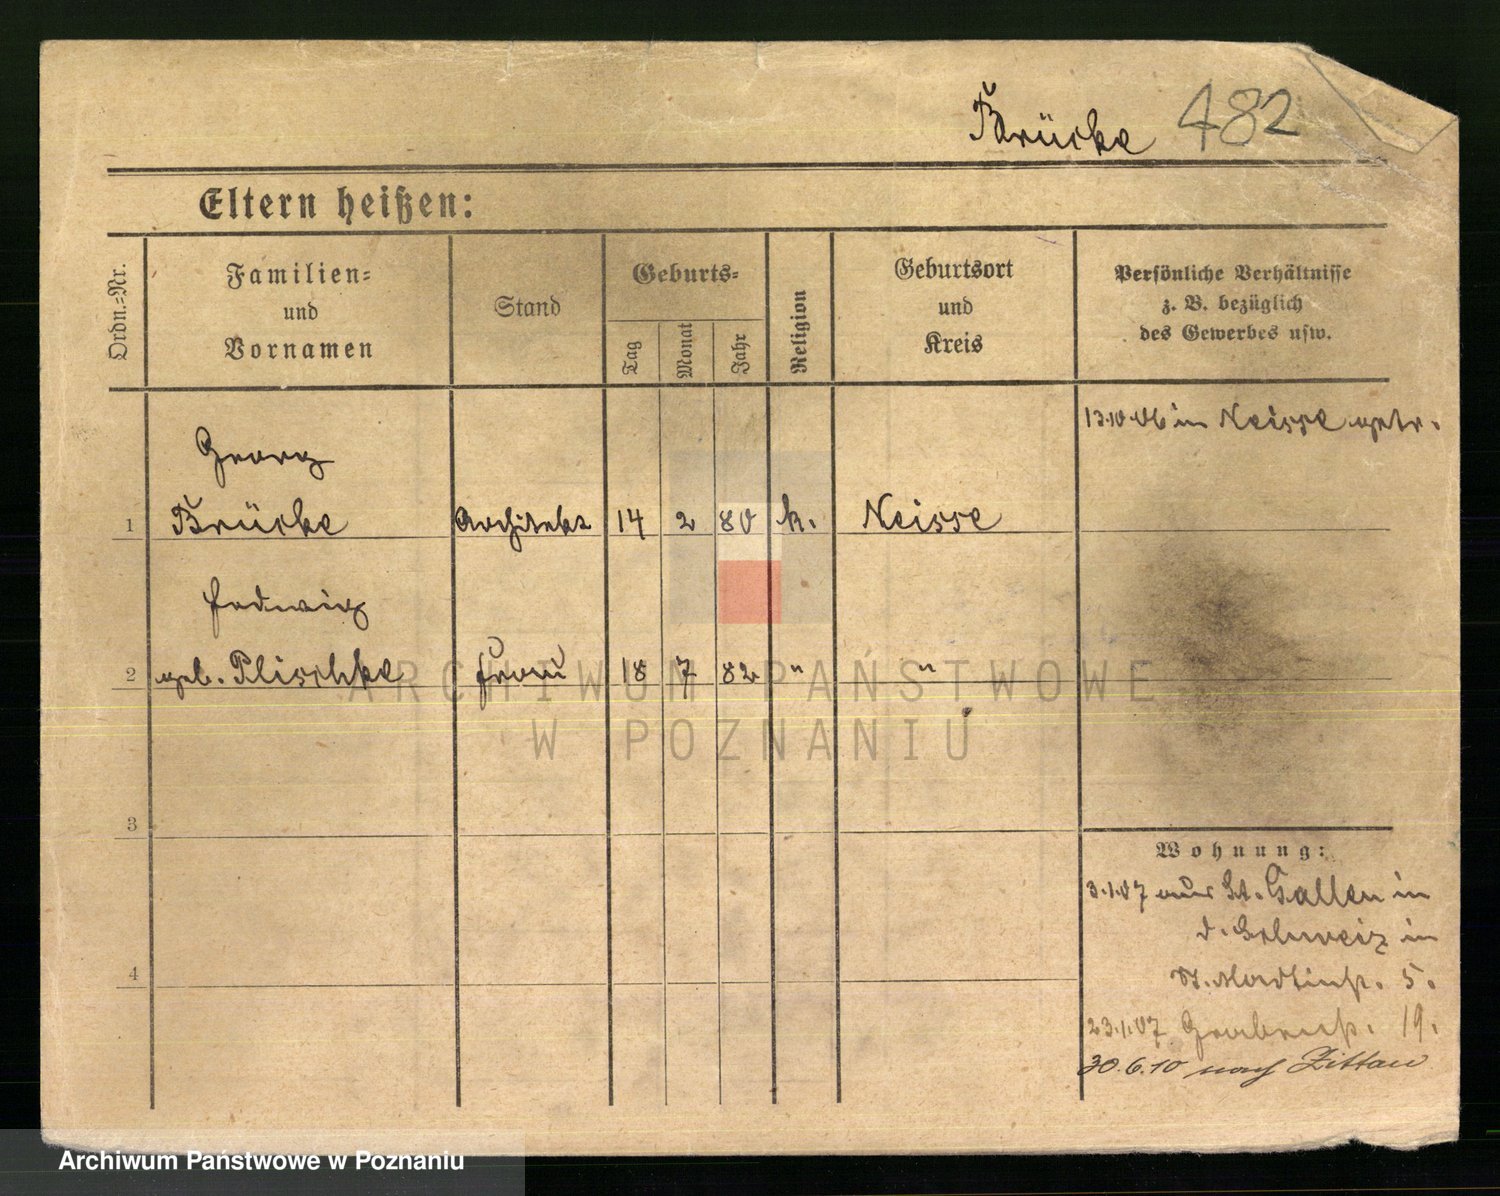 Brücke 482
Eltern heißen:
Ordn.-Nr.
Familien-
und
Vornamen
Stand
Geburts-
Tag
Monat
Jahr
Religion
Geburtsort
und
Kreis
Persönliche Verhältnisse
z. B. bezüglich
des Gewerbes usw.
13.10.06 in Neisse getr.
Georg
1 Brücke Architekt 14 2 80 k. Neisse
Hedwig
2 geb. Plischke Frau 18 7 82 " "
3
4
Wohnung:
3.1.07 aus St. Gallen in
d. Schweiz in
St. Martinstr. 5.
23.1.07 19.
30.6.10 nach Zittau
ARCHIWUM PAŃSTWOWE
W POZNANIU
Archiwum Państwowe w Poznaniu